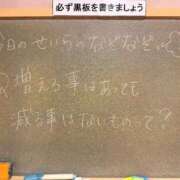 必ず黒板を書きましょう
今日のせいらのなぞなぞ
Q増える事はあっても
減る事はないものって?